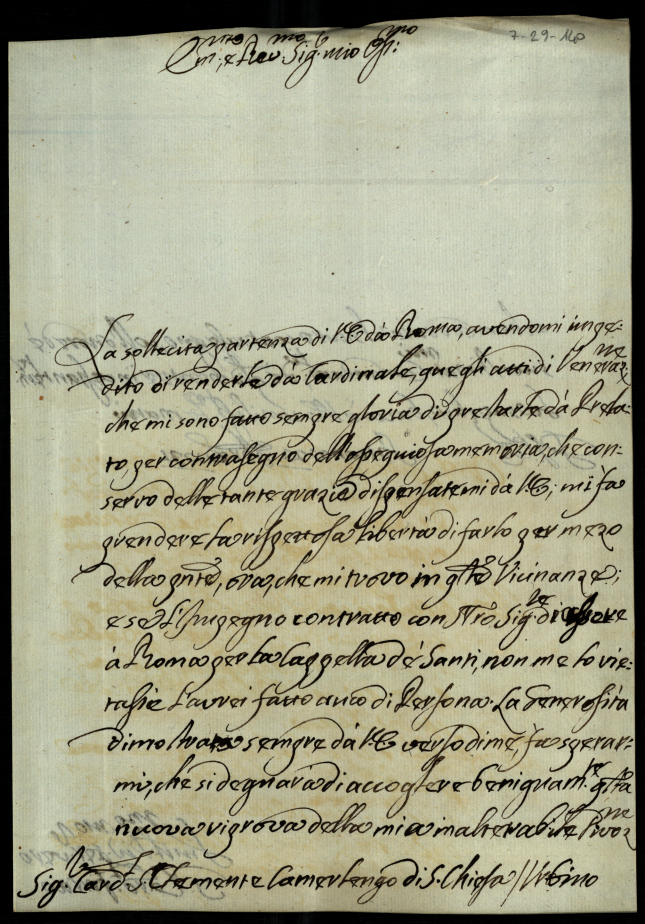 7-29-14
Em.mo e Rev.mo Sig. mio Oss.mo
La sollecita partenza di V.E. dà Roma, avendomi impe-
dito di renderle dà Cardinale, quegli atti di Veneraz.ne
che mi sono fatto sempre gloria di prestarle dà Prela-
to, per contrasegno dell'ossequiosa memoria, che con-
servo delle tante grazie dispensatemi dà V.E.; mi fa
prendere la rispettosa libertà di farlo per mezo
della pnte, ora, che mi trovo in qste Vicinanze;
e se l'Impegno contratto con Nro Sig.re di essere
à Roma per la Cappella dè Santi, non me lo vie-
tasse l'avrei fatto anco di Persona. La Generosità
dimostrata sempre dà V.E. verso di me, fa sperar-
mi, che si degnarà di accogliere benignam.te qsta
nuova riprova della mia inalterabile Divoz.ne
Sig.r Card. S. Clemente Camerlengo di S. Chiesa // Urbino